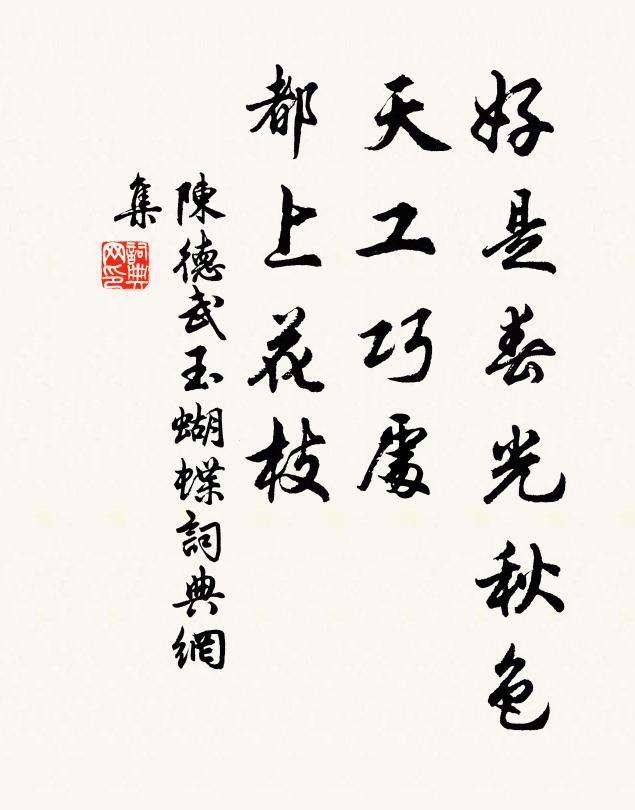 好是春光秋色
天工巧處
都上花枝
陳德武玉蝴蝶詞典網
集
詞典
网印